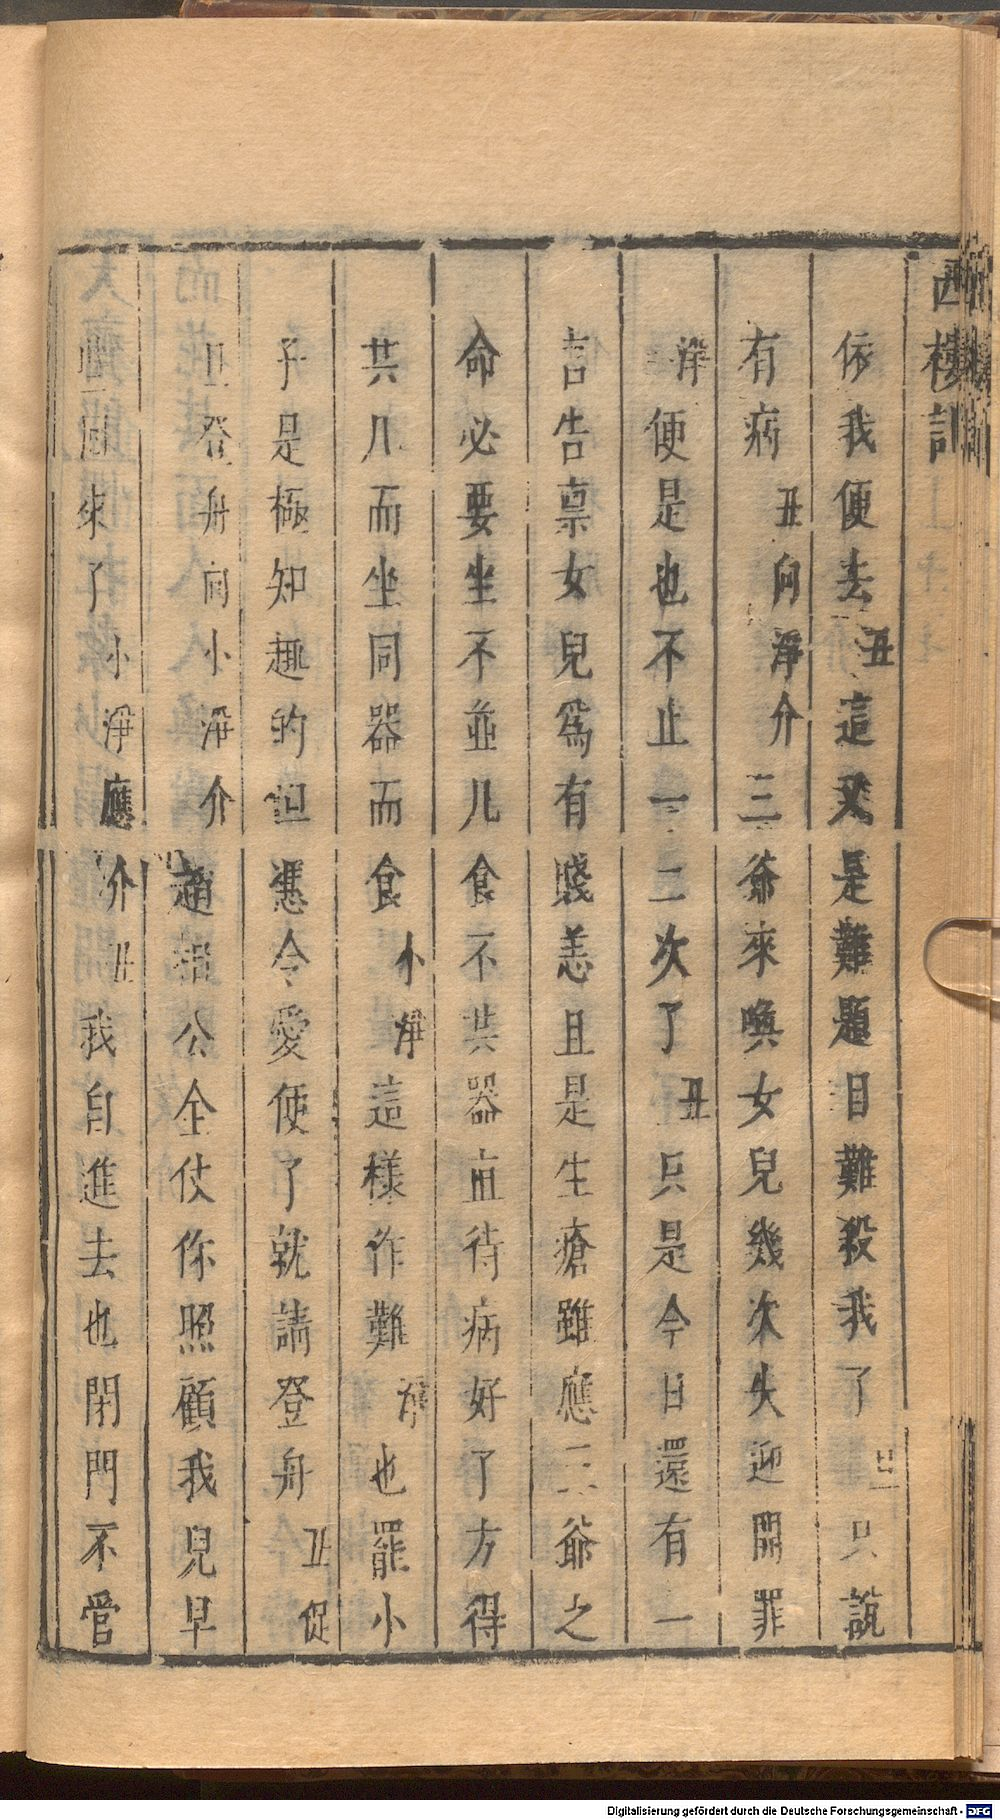 西樓記
依我便去丑這又是難題目難殺我了旦只說
有病丑向淨介三爺來喚女兒幾次失迎開罪
淨便是也不止一二次了丑只是今日還有一
言告禀女兒爲有賤恙且是生瘡雖應三爺之
命必要坐不並几食不共器直待病好了方得
共几而坐同器而食小淨這樣作難淨也罷小
子是極知趣的但憑令愛便了就請登舟丑促
旦登舟向小淨介趙相公全仗你照顧我兒早
些回來了小淨應介丑我自進去也閉門不管
Digitalisierung gefördert durch die Deutsche Forschungsgemeinschaft - DFG